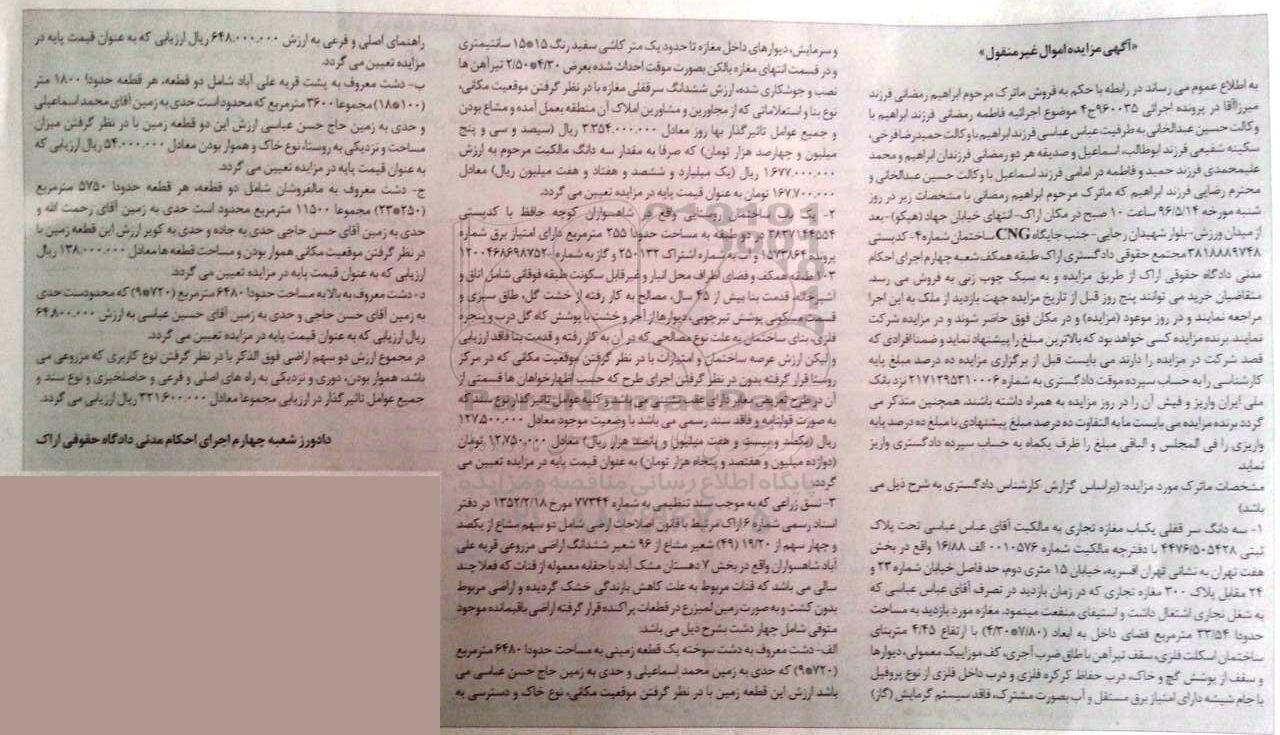 «آگهی مزایده اموال غیر منقول»
به اطلاع عموم می رساند در رابطه با حکم به فروش ماترک مرحوم ابراهیم رمضانی فرزند
میرزاآقا در پرونده اجرائی ۹۶۰۰۳۵ج۴ موضوع اجرائیه فاطمه رمضانی فرزند ابراهیم با
وکالت حسین عبدالخانی به طرفیت عباس عباسی فرزند ابراهیم با وکالت حمیدرضا فرخی،
سکینه شفیعی فرزند ابوطالب، اسماعیل و صدیقه هر دو رمضانی فرزندان ابراهیم و محمد
علیمحمدی فرزند حمید و فاطمه در امامی فرزند اسماعیل با وکالت حسین عبدالخانی و
محترم رضایی فرزند ابراهیم که ماترک مرحوم ابراهیم رمضانی با مشخصات زیر در روز
شنبه مورخه ۹۶/۵/۱۴ ساعت ۱۰ صبح در مکان اراک-انتهای خیابان جهاد (هپکو)-بعد
از میدان ورزش-بلوار شهیدان رجایی-جنب جایگاه CNG ساختمان شماره ۴- کدپستی
۳۸۱۸۸۸۹۷۴۸ مجتمع حقوقی دادگستری اراک طبقه همکف شعبه چهارم اجرای احکام
مدنی دادگاه حقوقی اراک از طریق مزایده و به سبک چوب زنی به فروش می رسد.
متقاضیان خرید می توانند پنج روز قبل از تاریخ مزایده جهت بازدید از ملک به این اجرا
مراجعه نمایند و در روز موعود (مزایده) و در مکان فوق حاضر شوند و در مزایده شرکت
نمایند. برنده مزایده کسی خواهد بود که بالاترین مبلغ را پیشنهاد نماید و ضمنا افرادی که
قصد شرکت در مزایده را دارند می بایست قبل از برگزاری مزایده ده درصد مبلغ پایه
کارشناسی را به حساب سپرده موقت دادگستری به شماره ۲۱۷۱۲۹۵۳۱۰۰۰۶ نزد بانک
ملی ایران واریز و فیش آن را در روز مزایده به همراه داشته باشند. همچنین متذکر می
گردد برنده مزایده می بایست مابه التفاوت ده درصد مبلغ پیشنهادی با مبلغ ده درصد پایه
واریزی را فی المجلس و الباقی مبلغ را ظرف یکماه به حساب سپرده دادگستری واریز
نماید.
مشخصات ماترک مورد مزایده: (براساس گزارش کارشناس دادگستری به شرح ذیل می
باشد)
۱- سه دانگ سر قفلی یکباب مغازه تجاری به مالکیت آقای عباس عباسی تحت پلاک
ثبتی ۴۴۷۶/۵۰۵۴۲۸ با دفترچه مالکیت شماره ۰۰۱۰۵۷۶ الف ۱۶/۸۸ واقع در بخش
هفت تهران به نشانی تهران افسریه، خیابان ۱۵ متری دوم، حد فاصل خیابان شماره ۲۳ و
۲۴ مقابل پلاک ۳۰۰ مغازه تجاری که در زمان بازدید در تصرف آقای عباس عباسی که
به شغل تجاری اشتغال داشت و استیفای منفعت مینمود، مغازه مورد بازدید به مساحت
حدودا ۳۳/۵۴ مترمربع فضای داخل به ابعاد (۴/۳۰*۷/۸۰) با ارتفاع ۴/۴۵ متربنای
ساختمان اسکلت فلزی، سقف تیرآهن با طاق ضرب آجری، کف موزاییک معمولی، دیوارها
و سقف از پوشش گچ و خاک، درب حفاظ کرکره فلزی و درب داخل فلزی از نوع پروفیل
با جام شیشه دارای امتیاز برق مستقل و آب بصورت مشترک، فاقد سیستم گرمایش (گاز)
و سرمایش، دیوارهای داخل مغازه تا حدود یک متر کاشی سفید رنگ ۱۵*۱۵ سانتیمتری
و در قسمت انتهای مغازه بالکن بصورت موقت احداث شده بعرض ۴/۳۰*۲/۵۰ تیرآهن ها
نصب و جوشکاری شده، ارزش ششدانگ سرقفلی مغازه با در نظر گرفتن موقعیت مکانی،
نوع بنا و استعلاماتی که از مجاورین و مشاورین املاک آن منطقه بعمل آمده و مشاع بودن
و جمیع عوامل تاثیرگذار بها روز معادل ۳.۳۵۴.۰۰۰.۰۰۰ ریال (سیصد و سی و پنج
میلیون و چهارصد هزار تومان) که صرفا به مقدار سه دانگ مالکیت مرحوم به ارزش
۱.۶۷۷.۰۰۰.۰۰۰ ریال (یک میلیارد و ششصد و هفتاد و هفت میلیون ریال) معادل
۱۶۷.۷۰۰.۰۰۰ تومان به عنوان قیمت پایه در مزایده تعیین می گردد.
۲- یک باب ساختمان روستایی واقع در شاهسواران کوچه حافظ با کدپستی
۳۸۳۷۱۴۴۵۵۴ در دو طبقه به مساحت حدودا ۲۵۵ مترمربع دارای امتیاز برق شماره
پرونده ۱۵۷۳۸۶۴ و آب به شماره اشتراک ۲۵۰۱۳۲ و گاز به شماره ۱۲۰۰۴۶۸۶۹۸۷۵۲-
۳- طبقه همکف و فضای اطراف محل انبار و غیرقابل سکونت طبقه فوقانی شامل اتاق و
آشپزخانه، قدمت بنا بیش از ۴۵ سال، مصالح به کار رفته از خشت گل، طاق سبزی و
قسمت مسکونی پوشش تیرچوبی، دیوارها از آجر و خشت با پوشش که گل درب و پنجره
فلزی، بنای ساختمان به علت نوع مصالحی که در آن به کار رفته و قدمت بنا فاقد ارزیابی
ولیکن ارزش عرصه ساختمان و امتیازات با در نظر گرفتن موقعیت مکانی که در مرکز
روستا قرار گرفته بدون در نظر گرفتن اجرای طرح که حسب اظهار خواهان ها قسمتی از
آن در طرح تعریض معابر دارای عقب نشینی می باشد و کلیه عوامل تاثیرگذار نوع سند که
به صورت قولنامه و فاقد سند رسمی می باشد با وضعیت موجود معادل ۱۲۷.۵۰۰.۰۰۰
ریال (یکصد و بیست و هفت میلیون و پانصد هزار ریال) معادل ۱۲.۷۵۰.۰۰۰ تومان
(دوازده میلیون و هفتصد و پنجاه هزار تومان) به عنوان قیمت پایه در مزایده تعیین می
گردد.
۳- نسق زراعی که به موجب سند تنظیمی به شماره ۷۷۳۴۴ مورخ ۱۳۵۲/۲/۱۸ در دفتر
اسناد رسمی شماره ۶ اراک مرتبط با قانون اصلاحات ارضی شامل دو سهم مشاع از یکصد
و چهار سهم از ۱۹/۲۰ (۴۹) شعیر مشاع از ۹۶ شعیر ششدانگ اراضی مزروعی قریه علی
آباد شاهسواران واقع در بخش ۷ دهستان مشک آباد با حقابه معموله از قنات که فعلا چند
سالی می باشد که قنات مربوط به علت کاهش بارندگی خشک گردیده و اراضی مربوط
بدون کشت و به صورت زمین لم‌یزرع در قطعات پراکنده قرار گرفته اراضی باقیمانده موجود
متوفی شامل چهار دشت بشرح ذیل می باشد:
الف- دشت معروف به دشت سوخته یک قطعه زمینی به مساحت حدودا ۶۴۸۰ مترمربع
(۷۲۰*۹) که حدی به زمین محمد اسماعیلی و حدی به زمین حاج حسن عباسی می
باشد ارزش این قطعه زمین با در نظر گرفتن موقعیت مکانی، نوع خاک و دسترسی به
راهنمای اصلی و فرعی به ارزش ۶۴۸.۰۰۰.۰۰۰ ریال ارزیابی که به عنوان قیمت پایه در
مزایده تعیین می گردد.
ب- دشت معروف به پشت قریه علی آباد شامل دو قطعه، هر قطعه حدودا ۱۸۰۰ متر
(۱۰۰*۱۸) مجموعا ۳۶۰۰ مترمربع که محدود است حدی به زمین آقای محمد اسماعیلی
و حدی به زمین حاج حسن عباسی ارزش این دو قطعه زمین با در نظر گرفتن میزان
مساحت و نزدیکی به روستا، نوع خاک و هموار بودن معادل ۵۴.۰۰۰.۰۰۰ ریال ارزیابی که
به عنوان قیمت پایه در مزایده تعیین می گردد.
ج- دشت معروف به مالفروشان شامل دو قطعه، هر قطعه حدودا ۵۷۵۰ مترمربع
(۲۵۰*۲۳) مجموعا ۱۱۵۰۰ مترمربع محدود است حدی به زمین آقای رحمت الله و
حدی به زمین آقای حسن حاجی حدی به جاده و حدی به کویر ارزش این قطعه زمین با
در نظر گرفتن موقعیت مکانی هموار بودن و مساحت قطعه ها معادل ۱۳۸.۰۰۰.۰۰۰ ریال
ارزیابی که به عنوان قیمت پایه در مزایده تعیین می گردد.
د- دشت معروف به بالا به مساحت حدودا ۶۴۸۰ مترمربع (۷۲۰*۹) که محدودست حدی
به زمین آقای حسن حاجی و حدی به زمین آقای حسین عباسی به ارزش ۶۴.۸۰۰.۰۰۰
ریال ارزیابی که به عنوان قیمت پایه در مزایده تعیین می گردد.
در مجموع ارزش دو سهم اراضی فوق الذکر با در نظر گرفتن نوع کاربری که مزروعی می
باشد، هموار بودن، دوری و نزدیکی به راه های اصلی و فرعی و حاصلخیزی و نوع سند و
جمیع عوامل تاثیر گذار در ارزیابی مجموعا معادل ۳۲۱.۶۰۰.۰۰۰ ریال ارزیابی می گردد.
دادورز شعبه چهارم اجرای احکام مدنی دادگاه حقوقی اراک
پایگاه اطلاع رسانی مناقصه و مزایده